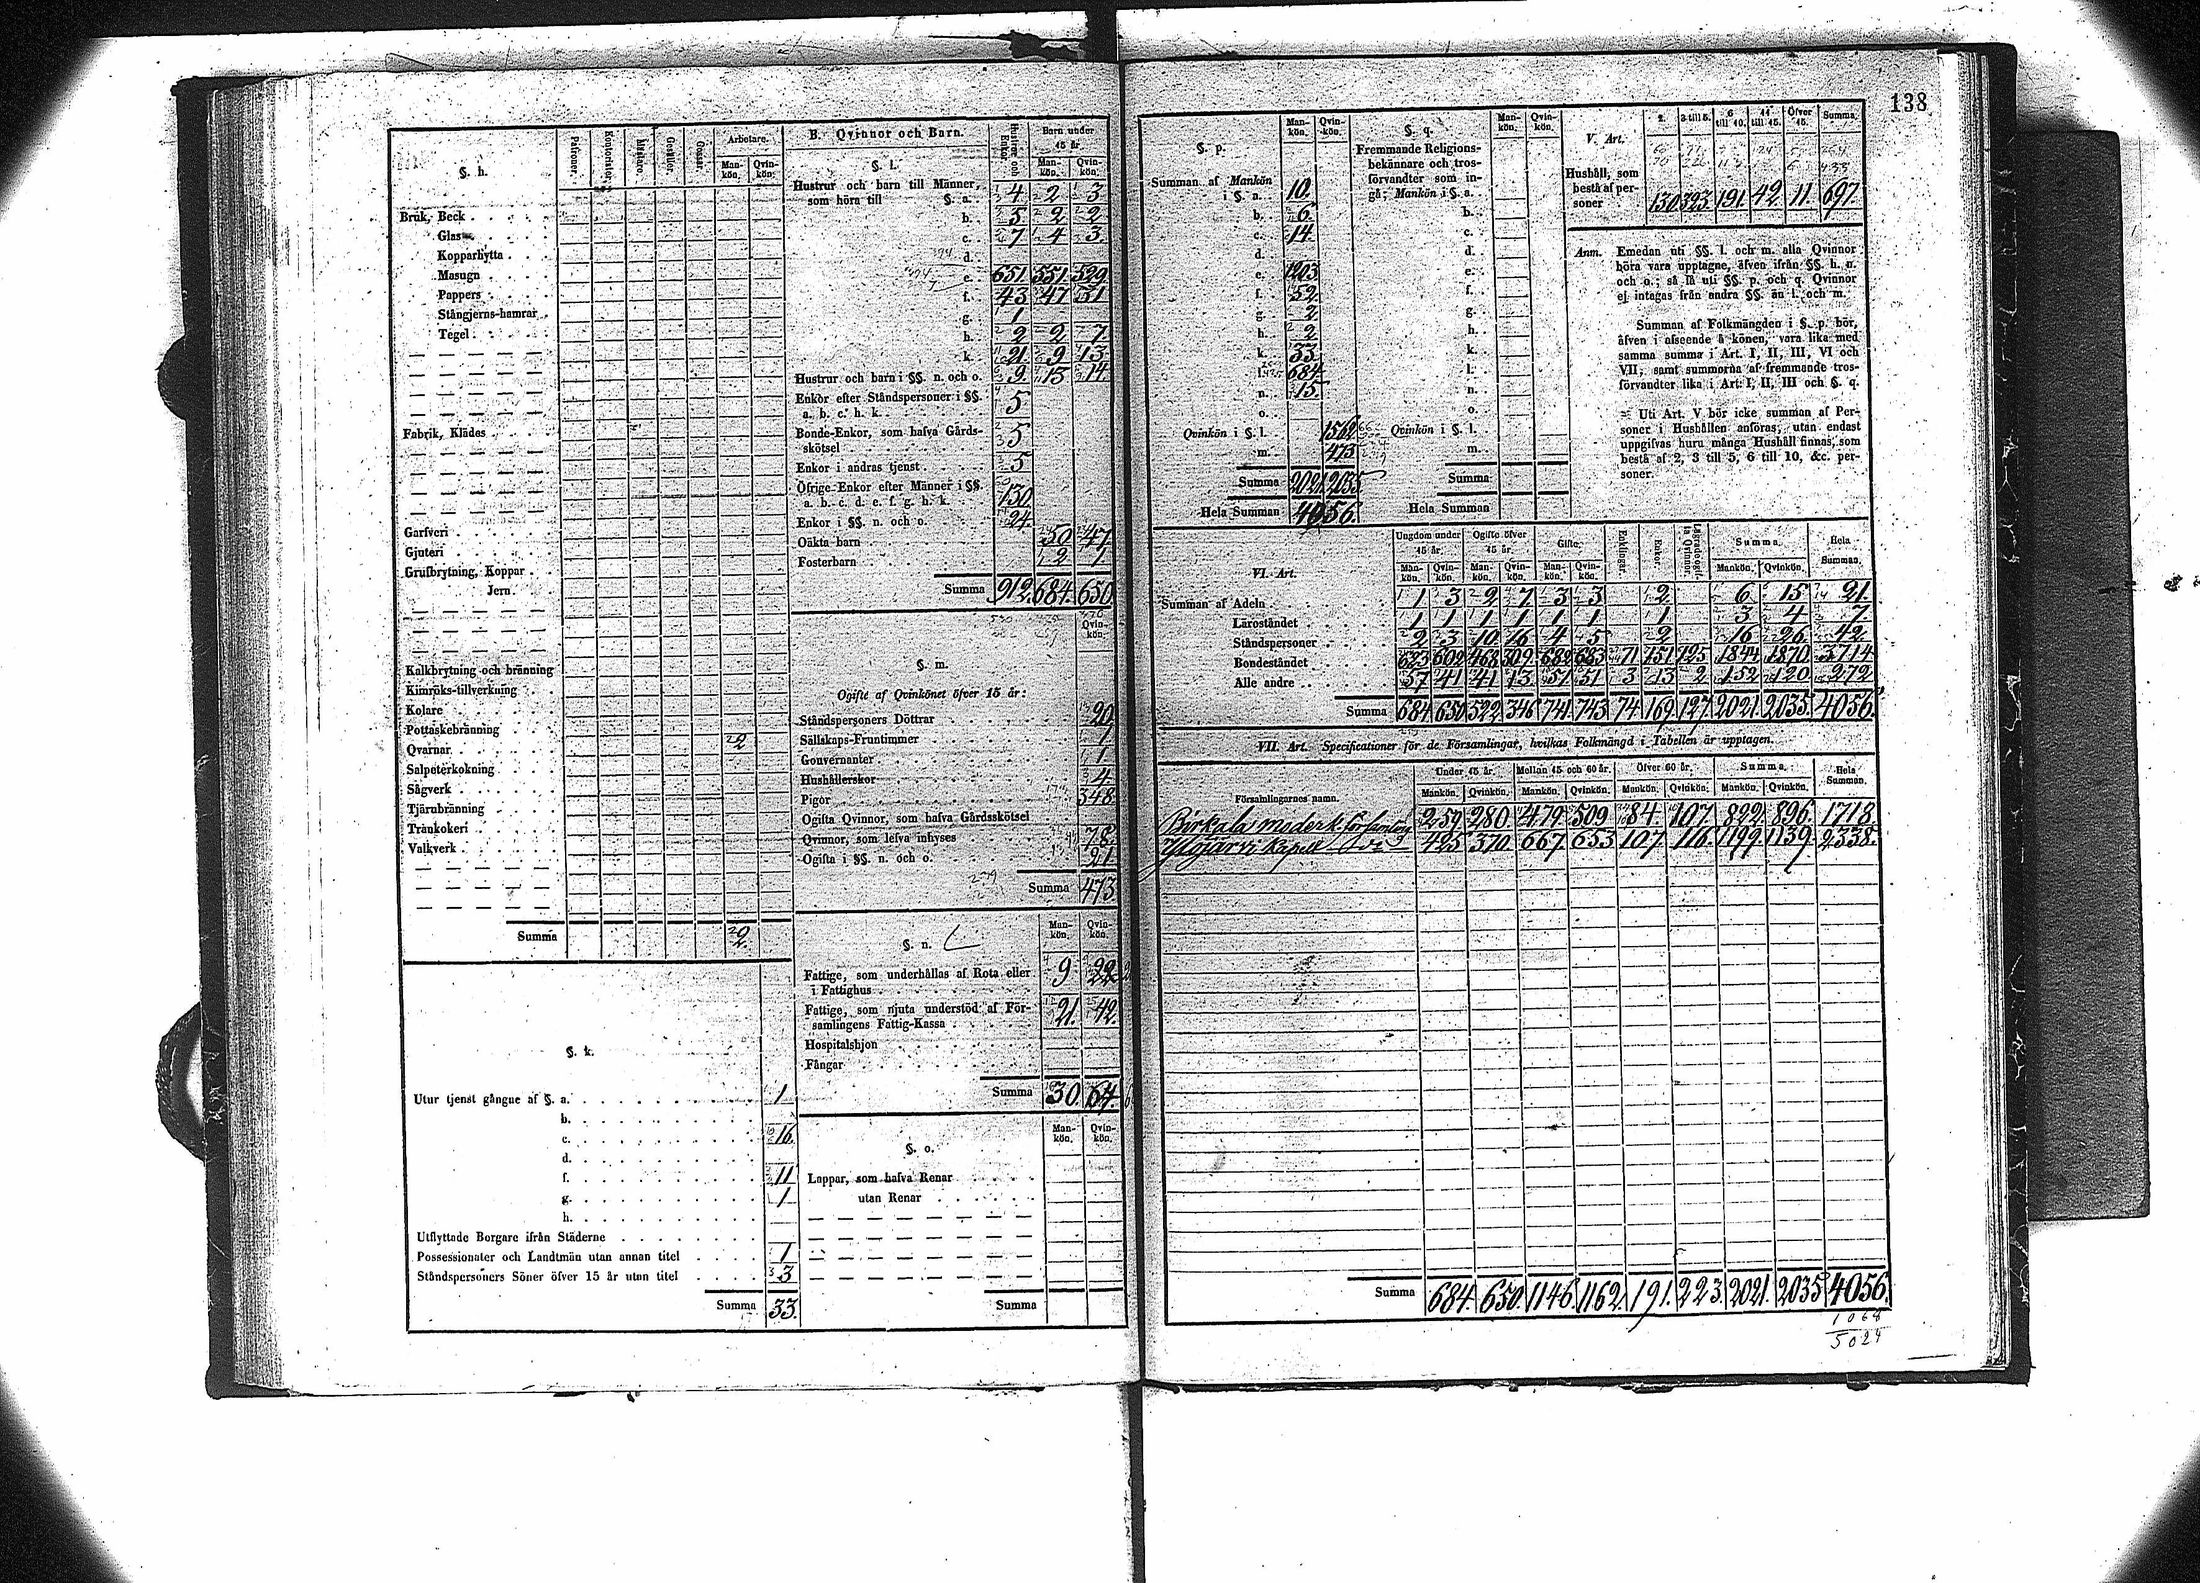 138
§. h.
Patroner.
Kontorister.
Mästare.
Gesäller.
Gossar.
Arbetare.
Man-kön. Qvin-kön.
Bruk, Beck
Glas
Kopparhytta
Masugn
Pappers
Stångjerns-hamrar
Tegel
Fabrik, Klädes
Garfveri
Gjuteri
Grufbrytning, Koppar
Jern
Kalkbrytning och bränning
Kimröks-tillverkning
Kolare
Pottaskebränning
Qvarnar 2
Salpeterkokning
Sågverk
Tjärubränning
Trånkokeri
Valkverk
Summa 2.
§. k.
Utur tjenst gångne af §. a. 1
b.
c. 16.
d.
f. 11
g. 1
h.
Utflyttade Borgare ifrån Städerne
Possessionater och Landtmän utan annan titel 1
Ståndspersoners Söner öfver 15 år utan titel 3
Summa 33.
B. Qvinnor och Barn.
Hustrur och Enkor.
Barn under 15 år.
Man-kön. Qvin-kön.
§. l.
Hustrur och barn till Männer,
som höra till §. a. 4 2 3
b. 5 2 2
c. 7 4 3
d.
e. 651 551 529
f. 43 47 31
g. 1
h. 2 2 7
k. 21 9 13
Hustrur och barn i §§. n. och o. 9. 15 14
Enkor efter Ståndspersoner i §§.
a. b. c. h. k. 5
Bonde-Enkor, som hafva Gårds-
skötsel 5
Enkor i andras tjenst 5
Öfrige Enkor efter Männer i §§.
a. b. c. d. e. f. g. h. k. 130
Enkor i §§. n. och o. 24.
Oäkta barn 50 47
Fosterbarn 2 1
Summa 912. 684. 650
§. m.
Qvin-kön.
Ogifte af Qvinkönet öfver 15 år:
Ståndspersoners Döttrar 20
Sällskaps-Fruntimmer 1
Gouvernanter 1
Hushållerskor 4
Pigor 348
Ogifta Qvinnor, som hafva Gårdsskötsel
Qvinnor, som lefva inhyses 78.
Ogifta i §§. n. och o. 21
Summa 473
§. n.
Man-kön. Qvin-kön.
Fattige, som underhållas af Rota eller
i Fattighus 9 22
Fattige, som njuta understöd af För-
samlingens Fattig-Kassa 21. 42.
Hospitalshjon
Fångar
Summa 30. 64.
§. o.
Man-kön. Qvin-kön.
Lappar, som hafva Renar
utan Renar
Summa
§. p.
Man-kön. Qvin-kön.
Summan af Mankön
i §. a. 10.
b. 6.
c. 14.
d.
e. 1203
f. 52.
g. 2
h. 2
k. 33.
l. 684.
n. 15.
o.
Qvinkön i §. l. 1562
m. 473
Summa 2021 2035
Hela Summan 4056.
§. q.
Man-kön. Qvin-kön.
Fremmande Religions-
bekännare och tros-
förvandter som in-
gå; Mankön i §. a.
b.
c.
d.
e.
f.
g.
h.
k.
l.
n.
o.
Qvinkön i §. l.
m.
Summa
Hela Summan
V. Art.
2. 3 till 5. 6 till 10. 11 till 15. Öfver 15. Summa.
Hushåll, som
bestå af per-
soner 130 323 191. 42. 11. 697.
Anm. Emedan uti §§. l. och m. alla Qvinnor
böra vara upptagne, äfven ifrån §§. h. n.
och o.; så få uti §§. p. och q. Qvinnor
ej intagas från andra §§. än l. och m.
Summan af Folkmängden i §. p. bör,
äfven i afseende å könen, vara lika med
samma summa i Art. I, II, III, VI och
VII; samt summorna af fremmande tros-
förvandter lika i Art. I, II, III och §. q.
Uti Art. V bör icke summan af Per-
soner i Hushållen anföras, utan endast
uppgifvas huru många Hushåll finnas, som
bestå af 2, 3 till 5, 6 till 10, &c. per-
soner.
VI. Art.
Ungdom under 15 år. Ogifte öfver 15 år. Gifte. Enklingar. Enkor. Lägrade ogifta Qvinnor. Summa. Hela Summan.
Man-kön. Qvin-kön. Man-kön. Qvin-kön. Man-kön. Qvin-kön. Mankön. Qvinkön.
Summan af Adeln 1 3 2 7 3 3 2 6 15 21.
Läroståndet 1 1 1 1 1 1 1 3 4 7.
Ståndspersoner 2 3 10 16 4 5 2 16 26 42
Bondeståndet 623 602 468 309 682 683 71 151 125 1844 1870 3714
Alle andre 57 41 41 13 51 51 3 13 2 152 120 272
Summa 684 650 522 346 741 743 74 169 127 2021 2035 4056.
VII. Art. Specificationer för de Församlingar, hvilkas Folkmängd i Tabellen är upptagen.
Församlingarnes namn.
Under 15 år. Mellan 15 och 60 år. Öfver 60 år. Summa. Hela Summan.
Mankön. Qvinkön. Mankön. Qvinkön. Mankön. Qvinkön. Mankön. Qvinkön.
Birkala moderk. församling 259 280 479 509 84. 107. 822. 896. 1718
Ylöjärvi Kapell 425 370. 667. 653 107. 116. 1199. 1139. 2338.
Summa 684. 650. 1146. 1162. 191. 223. 2021. 2035 4056.
1068
5024